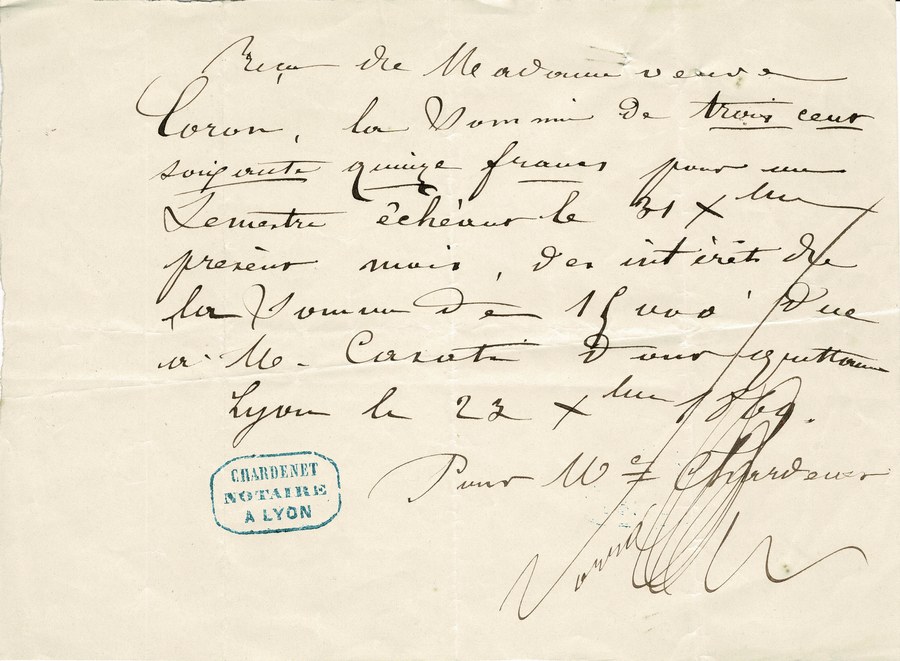 Reçu de Madame veuve
Coron, la Somme de trois cent
soixante quinze francs pour un
Semestre échéant le 31 Xbre
présent mois, des intérêts de
la Somme de 15000f due
a M. Casati Dont quittance
Lyon le 23 Xbre 1869.
Pour Me Chardenet
CHARDENET
NOTAIRE
A LYON